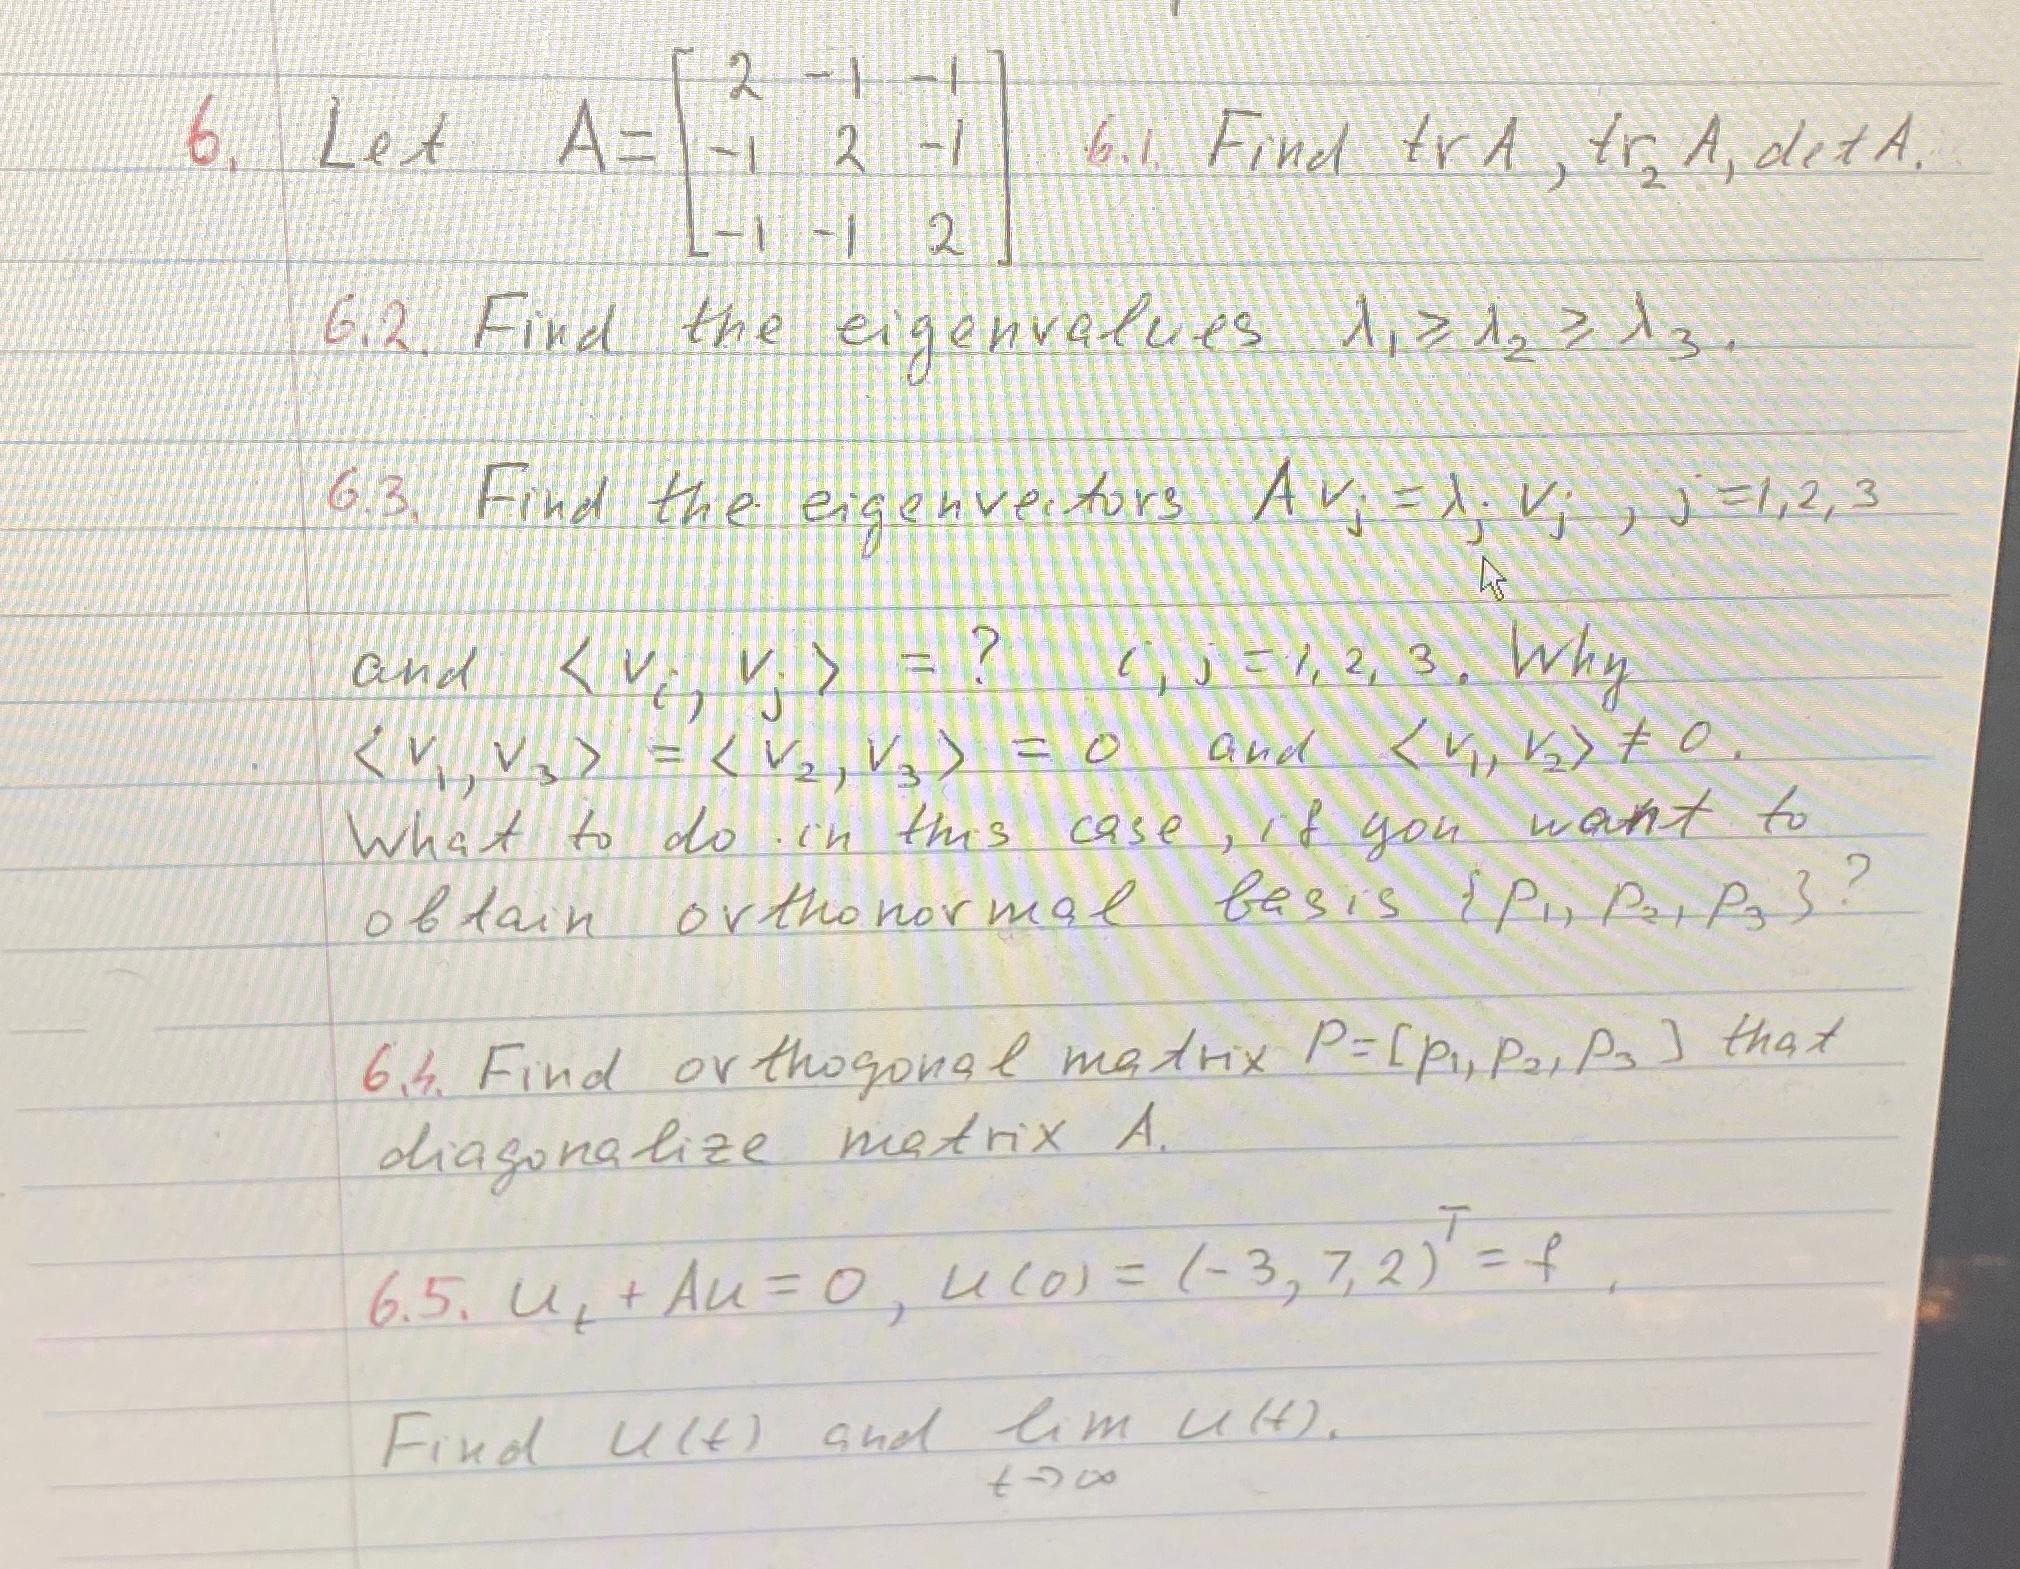 6. Let A = [2 -1 -1
-1 2 -1
-1 -1 2] 6.1. Find tr A, tr₂ A, det A.
6.2. Find the eigenvalues λ₁ ≥ λ₂ ≥ λ₃.
6.3. Find the eigenvectors A vⱼ = λⱼ vⱼ, j = 1, 2, 3
and <vᵢ, vⱼ> = ? i, j = 1, 2, 3. Why
<v₁, v₃> = <v₂, v₃> = 0 and <v₁, v₂> ≠ 0.
What to do in this case, if you want to
obtain orthonormal basis {p₁, p₂, p₃}?
6.4. Find orthogonal matrix P = [p₁, p₂, p₃] that
diagonalize matrix A.
6.5. uₜ + Au = 0, u(0) = (-3, 7, 2)ᵀ = f.
Find u(t) and lim u(t).
t→∞